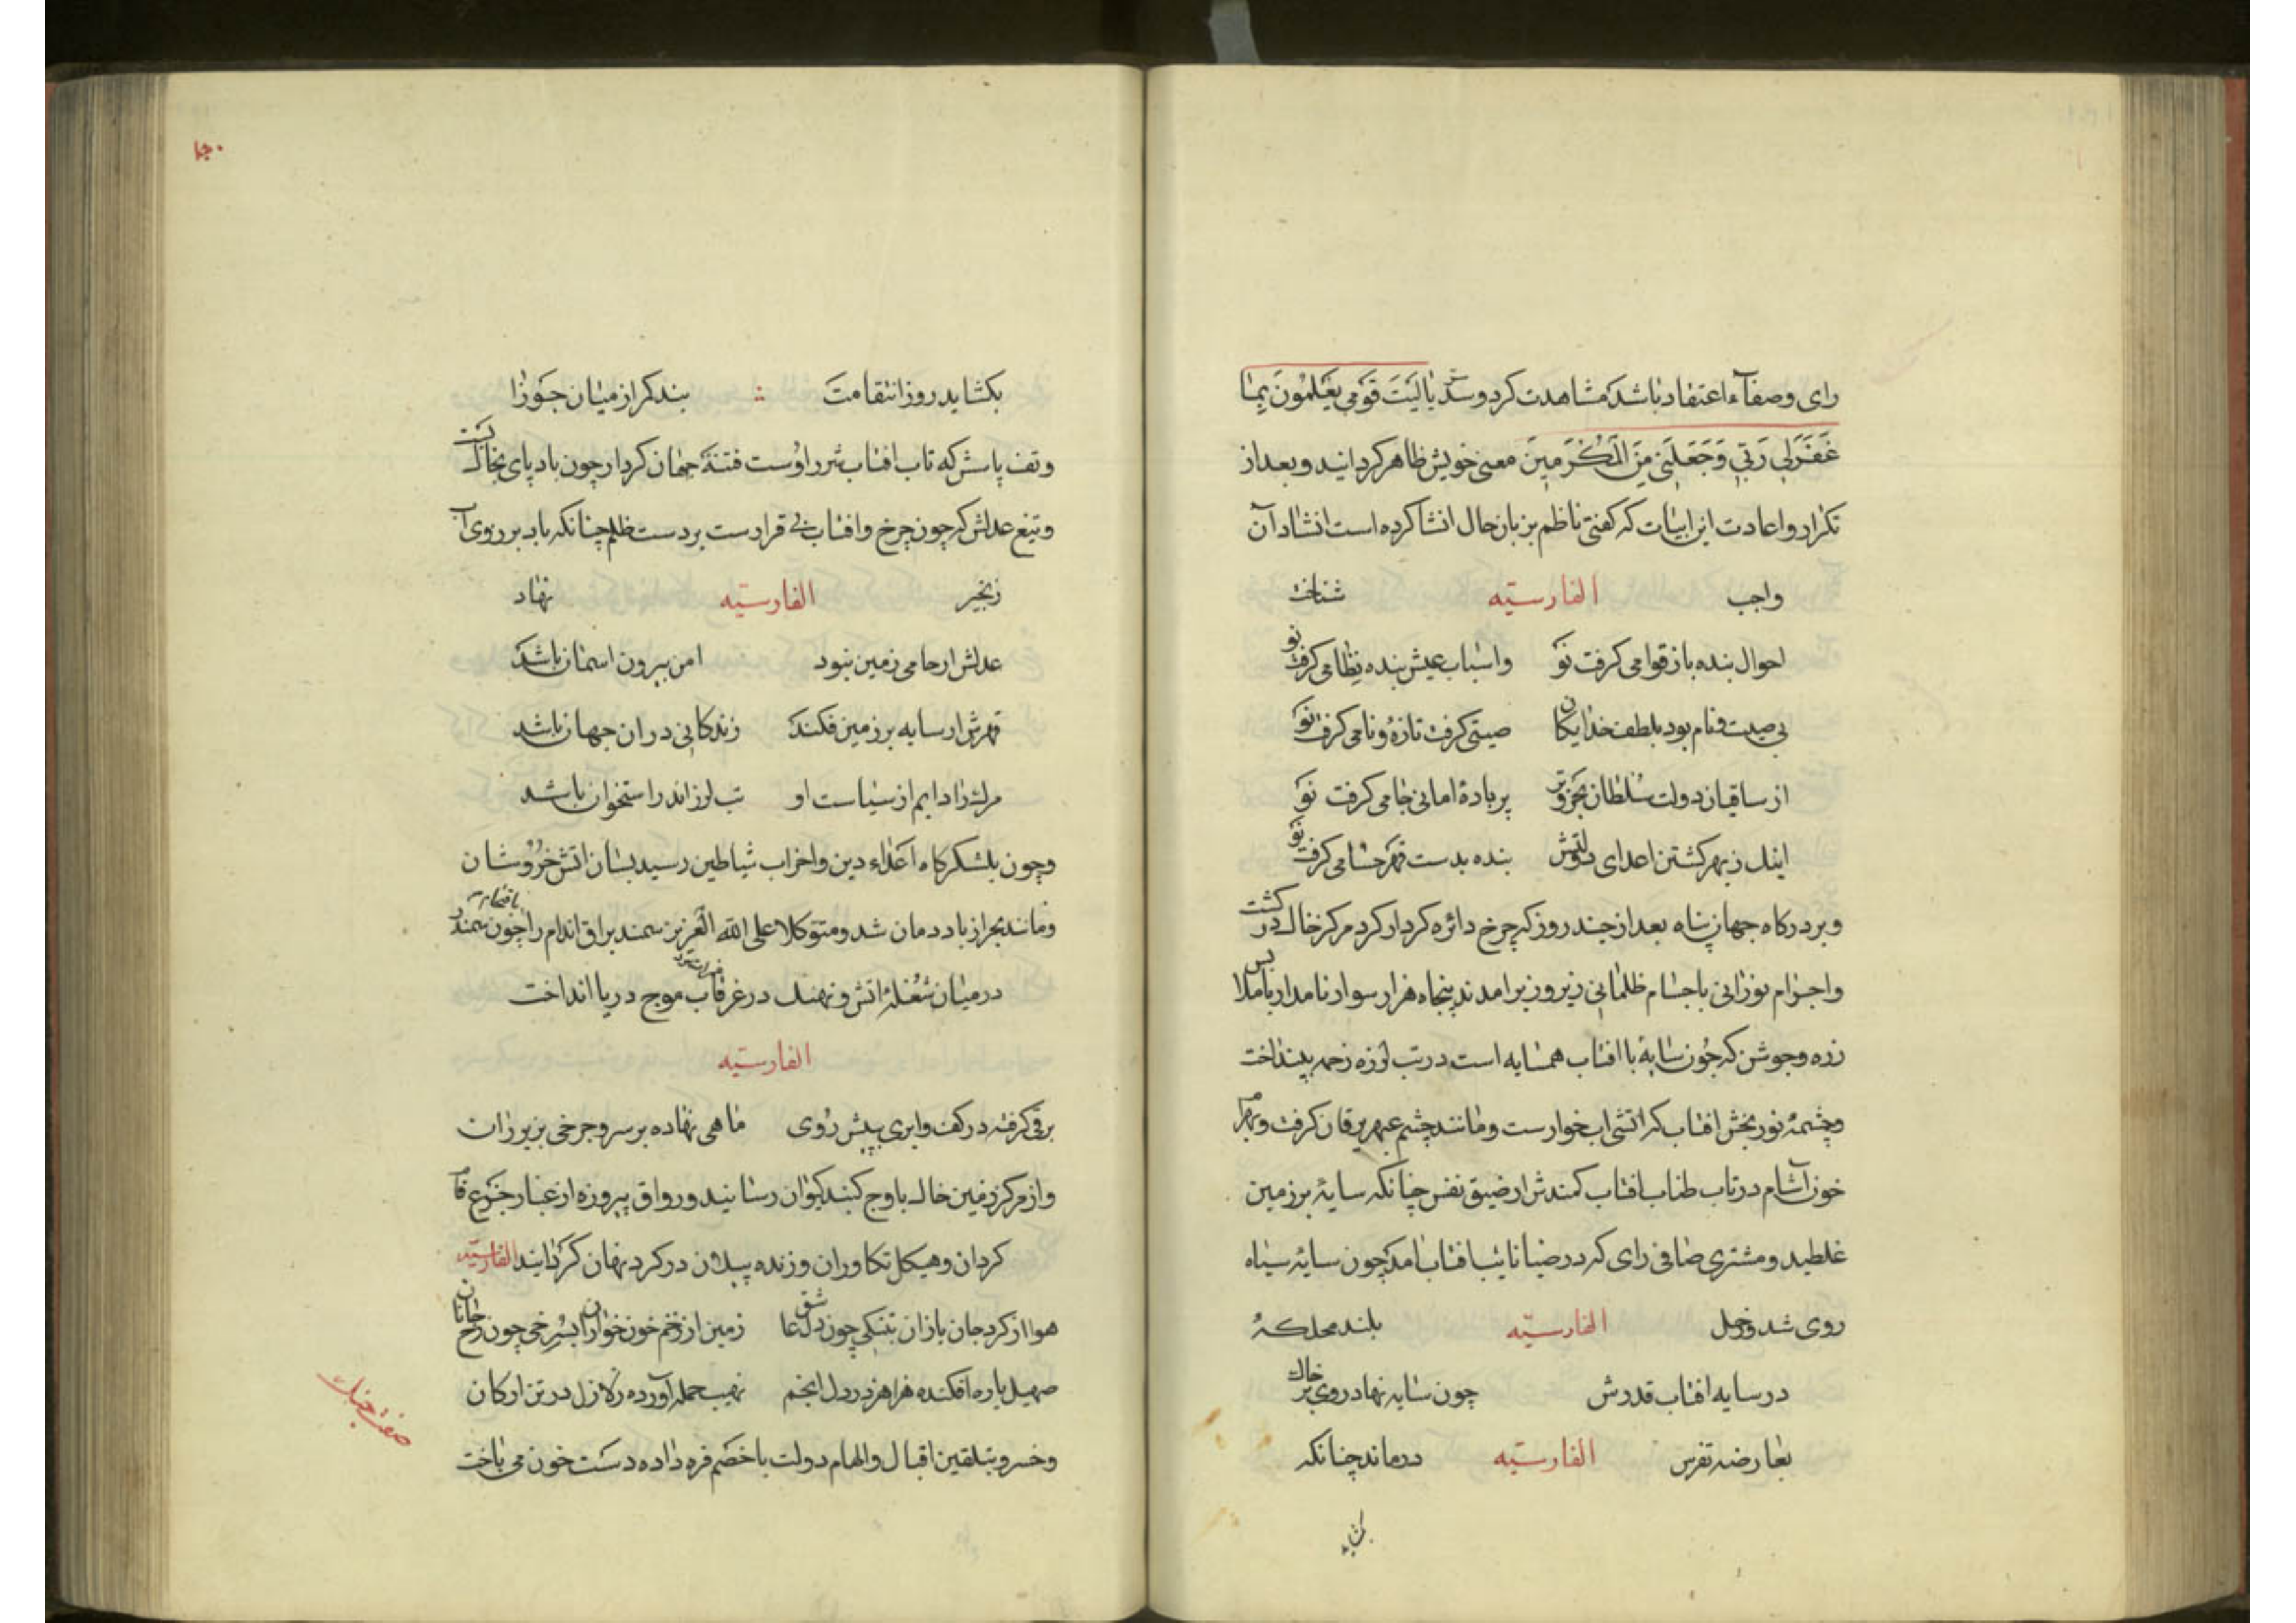 رای وصفاء اعتقاد باشد که مشاهدت کرد و سرّ یا لَیتَ قَومی یَعلَمُونَ بِمٰا
غَفَرَلی رَبّی وَجَعَلَنی مِنَ المُکرَمینَ معنی خویش ظاهر کردانید و بعد از
تکرار و اعادت این ابیات که کفتی ناظم بزبان حال انشا کرده است انشاد آن
واجب الفارسیّه شناخت
احوال بنده باز قوامی کرفت نو واسباب عیش بنده نظامی کرفت نو
بی صیت و نام بود بلطف خدایکان صیتی کرفت تازه و نامی کرفت نو
از ساقیان دولت سلطان بحر و بر پر باده امانی جامی کرفت نو
اینک ز بهر کشتن اعدای دولتش بنده بدست قهر حسامی کرفت نو
و بر درکاه جهان پناه بعد از چند روز که چرخ دائره کردار کرد مرکز خاک در کشت
واجرام نورانی باجسام ظلمانی زیر و زبر امدند پنجاه هزار سوار نامدار با
زره و جوشن که چون سایه با افتاب همسایه است در تب لرزه زحمه بینداخت
و چشمه نور بخش افتاب که اتشی اب خوارست و مانند چشم عبهر یرقان کرفت و
خون آشام در تاب طناب افتاب کمندش از ضیق نفس چنانکه سایه بر زمین
غلطید و مشتری صافی رای که در ضیا نایب افتاب امد چون سایه سیاه
روی شد و زحل الفارسیّه بلند محل که
در سایه افتاب قدرش چون سایه نهاد روی بر خاک
بعارضه نقرس الفارسیّه درماند چنانکه
بکشاید
بکشاید روز انتقامت بند کمر از میان جوزا
و تف پاسش که تاب افتاب شرر اوست فتنه جهان کردار چون باد پای بخاک کشت
و تیغ عدلش که چون چرخ و افتاب بی قرارست بر دست ظلم چنانکه باد بر روی آب
زنجیر الفارسیّه نهاد
عدلش ار حامی زمین نبود امن بیرون اسمان باشد
قهرش ار سایه بر زمین فکند زندکانی در ان جهان باشد
مرک را دایم از سیاست او تب لرز اندر استخوان باشد
و چون بلشکرکاه اعداء دین واحزاب شیاطین رسید بسان اتش خروشان
و مانند بحر از باد دمان شد و متوکلا علی الله العزیز سمند براق اندام را چون سمندر
در میان شعله اتش و نهنک در غرقاب موج دریا انداخت
الفارسیّه
برقی کرفته در کف وابری بپیش روی ماهی نهاده بر سر و چرخی بزیر ران
و از مرکز زمین خاک باوج کنبد کیوان رسانید و رواق پیروزه از غبار جزع فام
کردان و هیکل تکاوران و زنده پیلان در کرد نهان کردانید الفارسیّه
هوا از کرد جان بازان بتنکی چون دل عاشق زمین از زخم خون خواران بسرخی چون رخ جانان
صهیل باره افکنده هزاهز در دل انجم نهیب حمله آورده زلازل در تن ارکان
و خسرو بتلقین اقبال و الهام دولت با خصم فره داده دست خون می باخت
صفت جنک